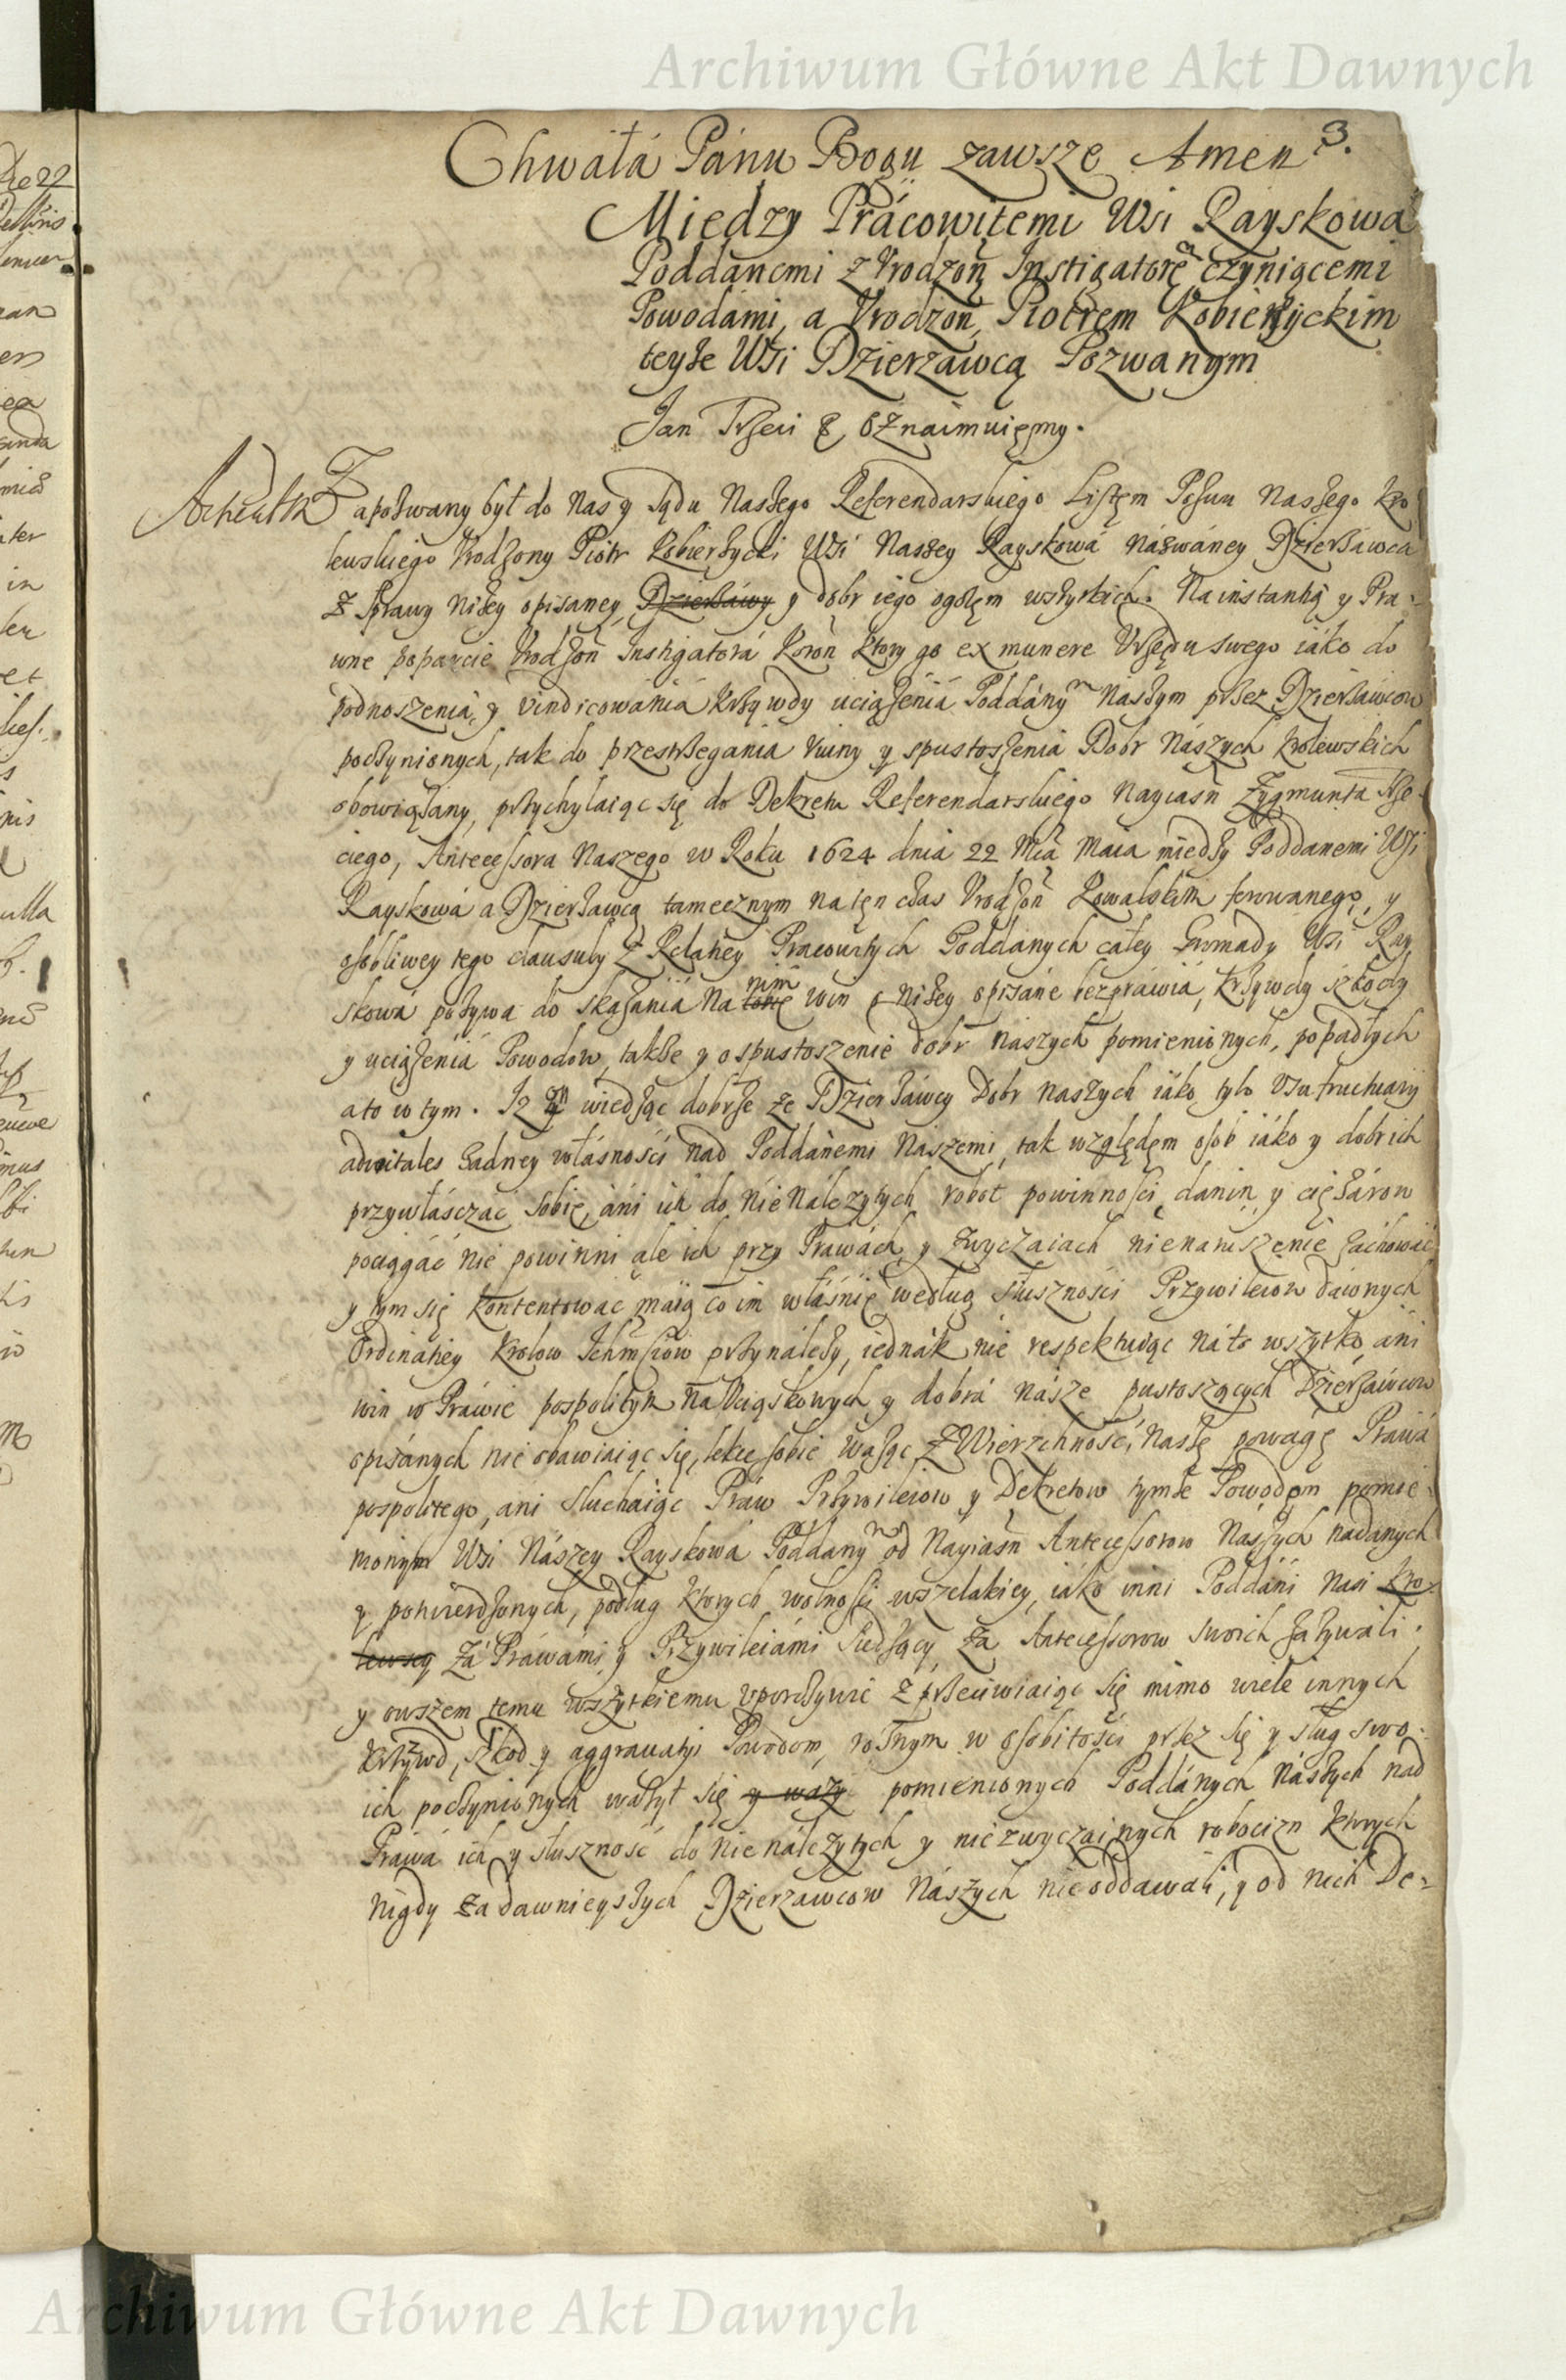 Archiwum Główne Akt Dawnych
3.
Chwałá Pánu Bogu zawsze Amen
Między Prácowitemi Wsi Rayskowá
Poddánemi z Vrodzon Instigatorem czyniącemi
Powodámi, a Vrodzon Piotrem Kobierzyckim
teyże Wsi Dzierzawcą Pozwanym
Jan Trzeci & Oznaimuięmy.
Zapozwany był do Nas y Sądu Naszego Referendarskiego Listem Pozwu Naszego Kro
lewskiego Vrodzony Piotr Kobierzycki Wsi Naszey Rayskowá názwáney Dzierzawca
z Sprawy niżey opisaney, Dzierżáwy y dobr iego ogołem wszytkich. Na instantią y Pra-
wne poparcie Vrodzon Instigatorá Koron ktory go ex munere Vrzędu swego iáko do
podnoszenia, y vindicowánia krzywdy uciążenia Poddánym Naszym przez Dzierżáwcow
poczynionych, tak do przestrzegania ruiny y spustoszenia Dobr Nászych Krolewskich
obowiązany, przychylaiąc się do Dekretu Referendarskiego Nayiasn Zygmunta Trze-
ciego, Antecessora Naszego w Roku 1624 dnia 22 Mca Maia między Poddanemi Wsi
Rayskowá a Dzierżawcą tamecznym na ten czas Vrodzon Kowalskim ferowanego, y
osobliwey tego clausuły z Relatiey Pracowitych Poddanych całey Gromady Wsi Ray
skowá pozywa do skazánia na nim win o niżey opisáne bezpráwia, krzywdy szkody
y uciążenia Powodow, także y o spustoszenie dobr naszych pomienionych, popadłych
a to w tym. Iż wiedząc dobrze że Dzierżáwcy Dobr naszych iáko tylo Vsufructuarij
advitales żadney włásności nad Poddánemi Naszemi, tak względem osob iáko y dobr ich
przywłászczać sobie, áni ich do nienáleżytych robot powinności, danin, y ciężárow
pociągáć nie powinni ale ich przy Prawách y zwyczaiach nienaruszenie záchowáć
y tym się kontentowáć máią co im włáśnie według słuszności Przywileiow dawnych
Ordinatiey Krolow Ichmsciow przynáleży, iednák nie respektuiąc ná to wszytko áni
win w Práwie pospolitym na Uciąskowych y dobrá násze pustoszących Dzierżáwcow
opisánych nie obawiaiąc się, lekce sobie ważąc Zwierzchność Naszę powagę Práwá
pospolitego, ani słuchaiąc Praw Przywileiow y Dekretow tymże Powodom pomie-
nionym Wsi Nászey Rayskowá Poddanym od Nayiasn Antecessorow Naszych nadanych
y potwierdzonych, podług ktorych wolności wszelakiey, iáko inni Poddáni Nasi kro-
lewscy zá Práwami y Przywileiámi siedzący, za Antecessorow swoich zażywali.
y owszem temu wszytkiemu vporczywie zprzeciwiaiąc się mimo wiele innych
krzywd, szkod y aggrauatij Powodom, roznym w osobitości przez się y sług swo-
ich poczynionych ważył się y waży pomienionych Poddánych Nászych nad
Práwá ich y słuszność do nienáleżytych y niezwyczaínych robocizn ktorych
nigdy za dawnieyszych Dzierzawcow Nászych nieoddawali, y od nich De-
Archiwum Główne Akt Dawnych